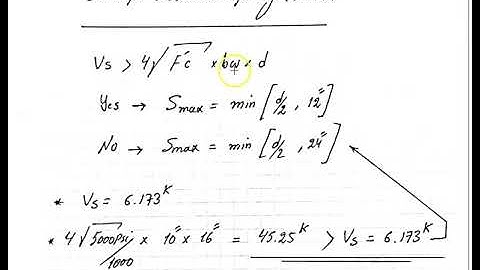 Vs > 4√F'c × bw × d
Yes → Smax = min [d/2, 12"]
No → Smax = min [d/2, 24"]
* Vs = 6.173 K
* 4√5000psi/1000 × 10" × 16" = 45.25 K > Vs = 6.173 K